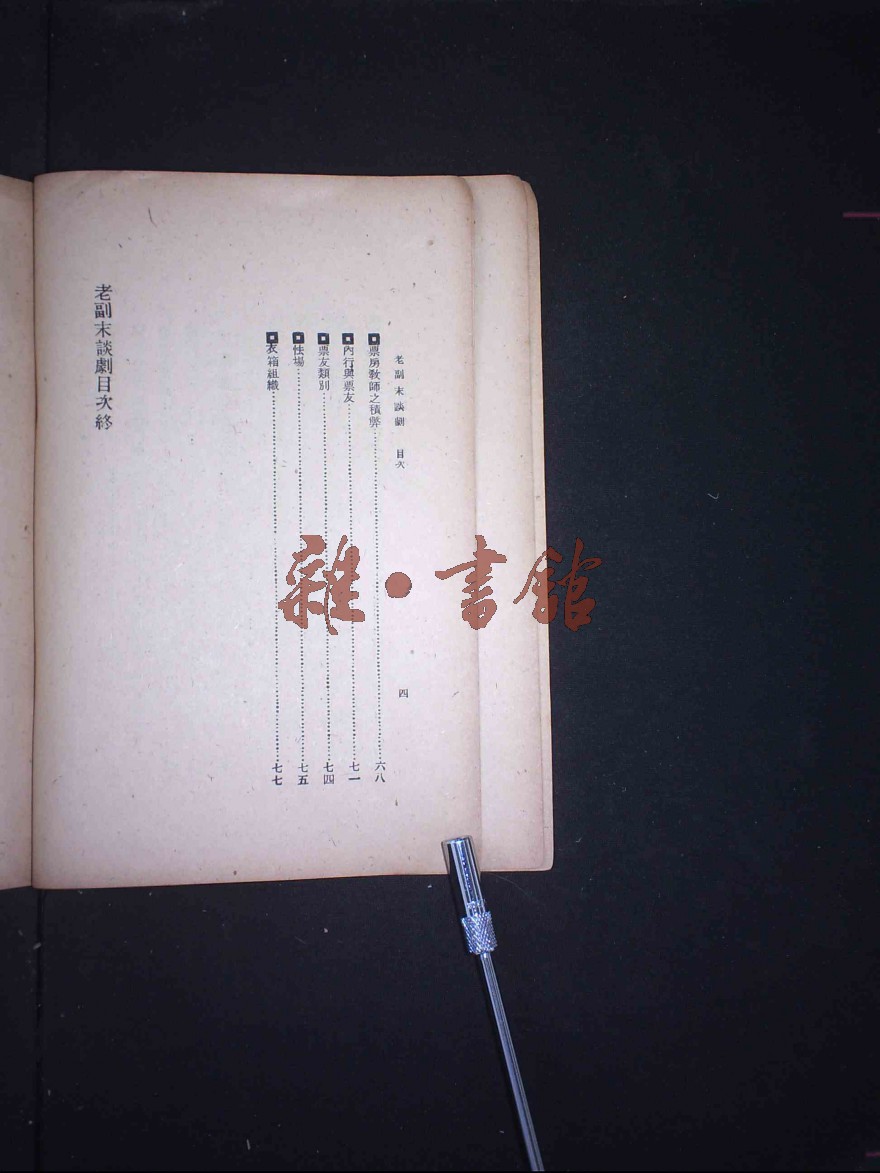 老副末談劇　目次
四
票房敎師之積弊……六八
內行與票友……七一
票友類別……七四
怯塲……七五
衣箱組織……七七
老副末談劇目次終
雜·書館